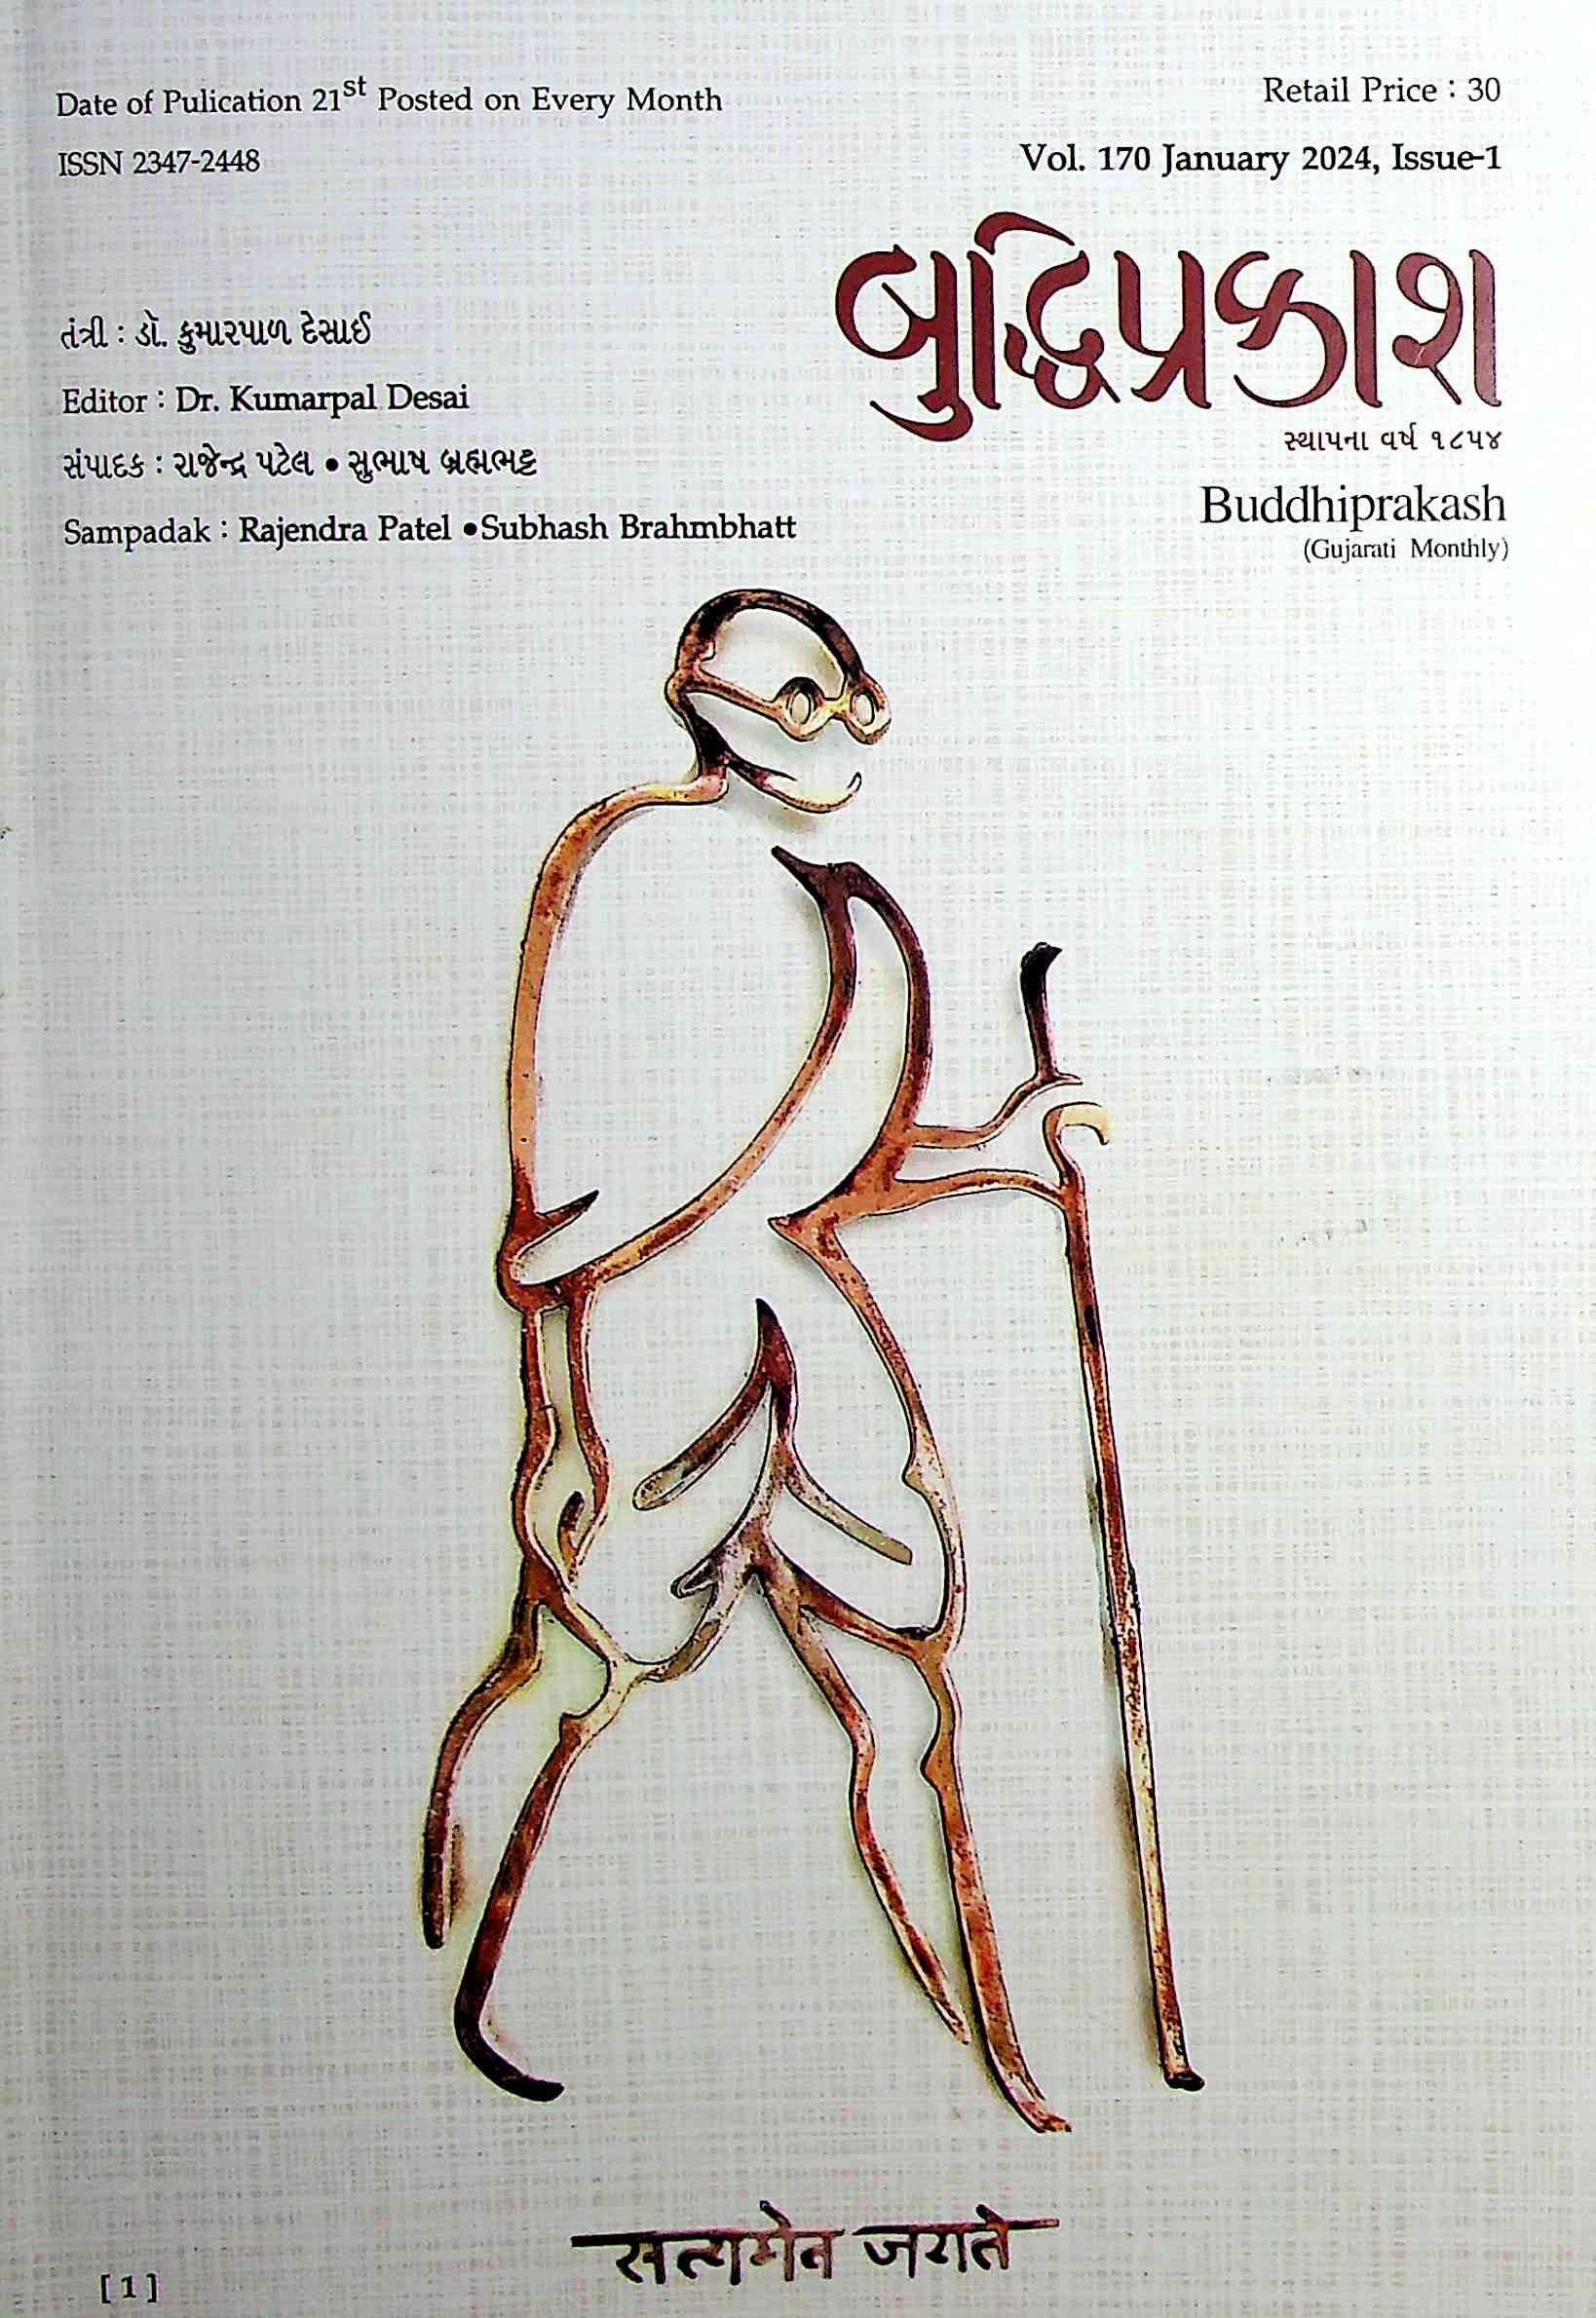 Date of Pulication 21st Posted on Every Month
Retail Price : 30
ISSN 2347-2448
Vol. 170 January 2024, Issue-1
બુદ્ધિપ્રકાશ
સ્થાપના વર્ષ ૧૮૫૪
Buddhiprakash
(Gujarati Monthly)
તંત્રી : ડૉ. કુમારપાળ દેસાઈ
Editor : Dr. Kumarpal Desai
સંપાદક : રાજેન્દ્ર પટેલ • સુભાષ બ્રહ્મભટ્ટ
Sampadak : Rajendra Patel •Subhash Brahmbhatt
सत्यमेव जयते
[ 1 ]